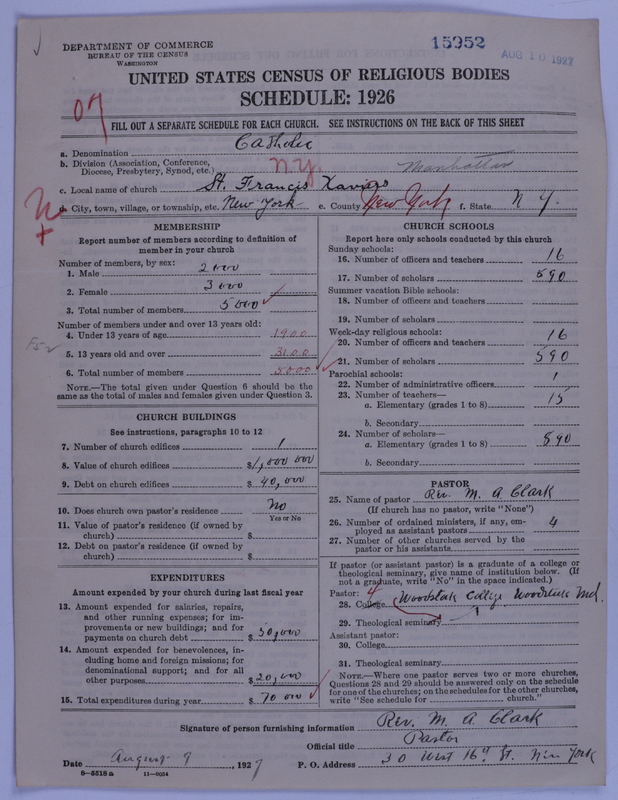 15952
AUG 10 1927
DEPARTMENT OF COMMERCE
BUREAU OF THE CENSUS
WASHINGTON
UNITED STATES CENSUS OF RELIGIOUS BODIES
SCHEDULE: 1926
07
FILL OUT A SEPARATE SCHEDULE FOR EACH CHURCH. SEE INSTRUCTIONS ON THE BACK OF THIS SHEET
a. Denomination Catholic
b. Division (Association, Conference, Diocese, Presbytery, Synod, etc.) N.Y. Manhattan
c. Local name of church St. Francis Xavier's
d. City, town, village, or township, etc. New York e. County New York f. State N Y.
MEMBERSHIP
Report number of members according to definition of member in your church
Number of members, by sex:
1. Male 2000
2. Female 3000
3. Total number of members 5000
Number of members under and over 13 years old:
4. Under 13 years of age 1900
5. 13 years old and over 3100
6. Total number of members 5000
NOTE.—The total given under Question 6 should be the same as the total of males and females given under Question 3.
CHURCH BUILDINGS
See instructions, paragraphs 10 to 12
7. Number of church edifices 1
8. Value of church edifices $1,000 000
9. Debt on church edifices $40,000
10. Does church own pastor's residence? No
Yes or No
11. Value of pastor's residence (if owned by church) $
12. Debt on pastor's residence (if owned by church) $
EXPENDITURES
Amount expended by your church during last fiscal year
13. Amount expended for salaries, repairs, and other running expenses; for improvements or new buildings; and for payments on church debt $50,000
14. Amount expended for benevolences, including home and foreign missions; for denominational support; and for all other purposes $20,000
15. Total expenditures during year $70 000
CHURCH SCHOOLS
Report here only schools conducted by this church
Sunday schools:
16. Number of officers and teachers 16
17. Number of scholars 590
Summer vacation Bible schools:
18. Number of officers and teachers
19. Number of scholars
Week-day religious schools:
20. Number of officers and teachers 16
21. Number of scholars 590
Parochial schools:
22. Number of administrative officers 1
23. Number of teachers—
a. Elementary (grades 1 to 8) 15
b. Secondary
24. Number of scholars—
a. Elementary (grades 1 to 8) 590
b. Secondary
PASTOR
25. Name of pastor Rev. M. A Clark
(If church has no pastor, write "None")
26. Number of ordained ministers, if any, employed as assistant pastors 4
27. Number of other churches served by the pastor or his assistants
If pastor (or assistant pastor) is a graduate of a college or theological seminary, give name of institution below. (If not a graduate, write "No" in the space indicated.)
Pastor: 4
28. College Woodstock College Woodstock Md.
29. Theological seminary
Assistant pastor:
30. College
31. Theological seminary
NOTE.—Where one pastor serves two or more churches, Questions 28 and 29 should be answered only on the schedule for one of the churches; on the schedules for the other churches, write "See schedule for church."
Signature of person furnishing information Rev. M. A Clark
Official title Pastor
Date August 9, 1927 P. O. Address 30 West 16th St. New York
8—5518a 11—9054